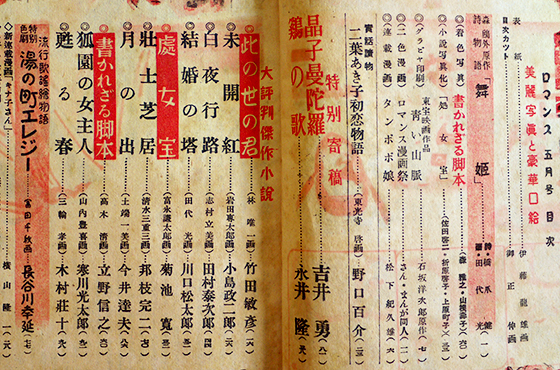 ロマン 五月号 目次
美麗写真と豪華口絵
表紙 伊藤龍雄画
目次カット 御正伸画
森鷗外原作
詩物語「舞姫」
◇着色写真「書かれざる脚本」
◇小説写真化「処女宝」
◇グラビヤ印刷 東宝映画作品 青い山脈 石坂洋次郎原作(七)
◇二色漫画 ロマンス漫画祭 さん・まんが同人
◇連載漫画 タンポポ娘 松下紀久雄
実話読物
二葉あき子初恋物語 (東光寺啓画) 野口百介
特別寄稿
晶子曼陀羅 吉井勇
鶏の歌 永井隆
大評判傑作小説
◎此の世の君 (林唯一画) 竹田敏彦
◎未開紅 (岩田専太郎画) 小島政二郎
◎白夜行路 (志村立美画) 田村泰次郎
◎結婚の塔 (田代光画) 川口松太郎
◎処女宝 (富永謙太郎画) 菊池寛
◎壮士芝居 (清水三重三画) 邦枝完二
◎月の出 (土端一美画) 今井達夫
◎書かれざる脚本 (高木清画) 立野信之
◎狐園の女主人 (山内豊喜画) 寒川光太郎
◎甦る春 (三輪孝画) 木村荘十
流行歌謡絵物語
特別色刷 湯の町エレジー 富田千秋画 長谷川幸延
◇新連載漫画「キナ子さん」 横山隆一